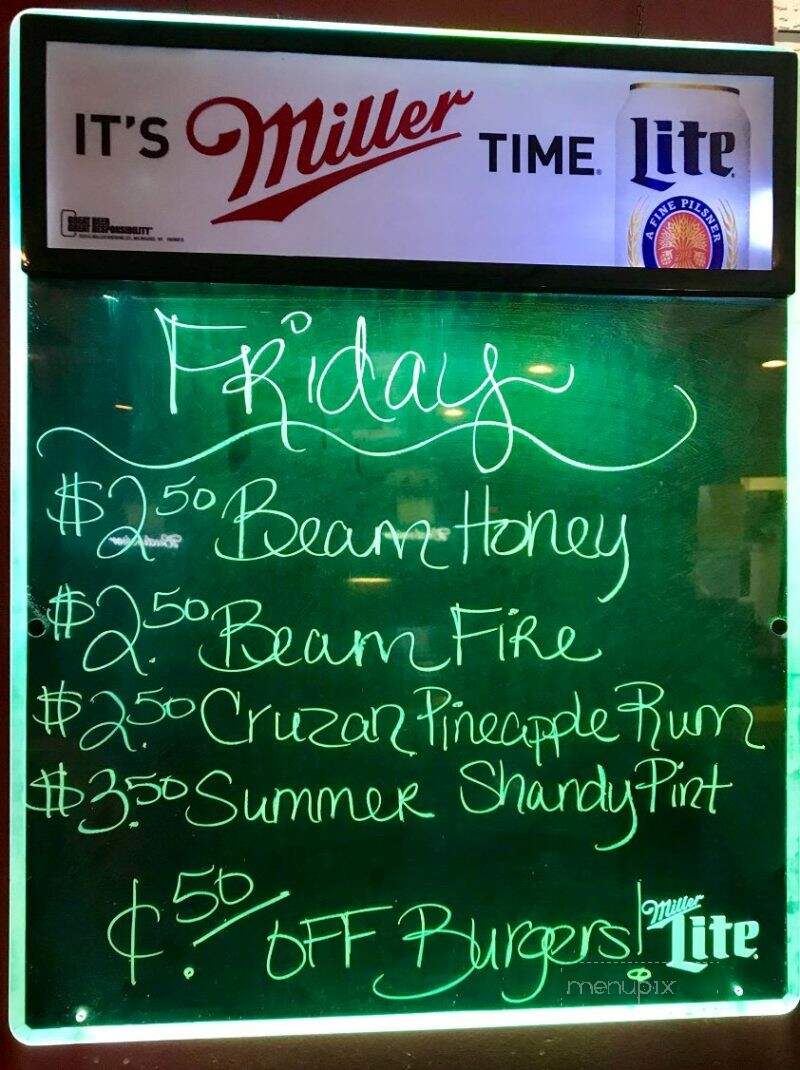 IT'S Miller TIME. Lite
A FINE PILSNER
GREAT BEER
GREAT RESPONSIBILITY
Friday
$2.50 Beam Honey
$2.50 Beam Fire
$2.50 Cruzan Pineapple Rum
$3.50 Summer Shandy Pint
¢.50/ OFF Burgers!
Miller
Lite
menupix